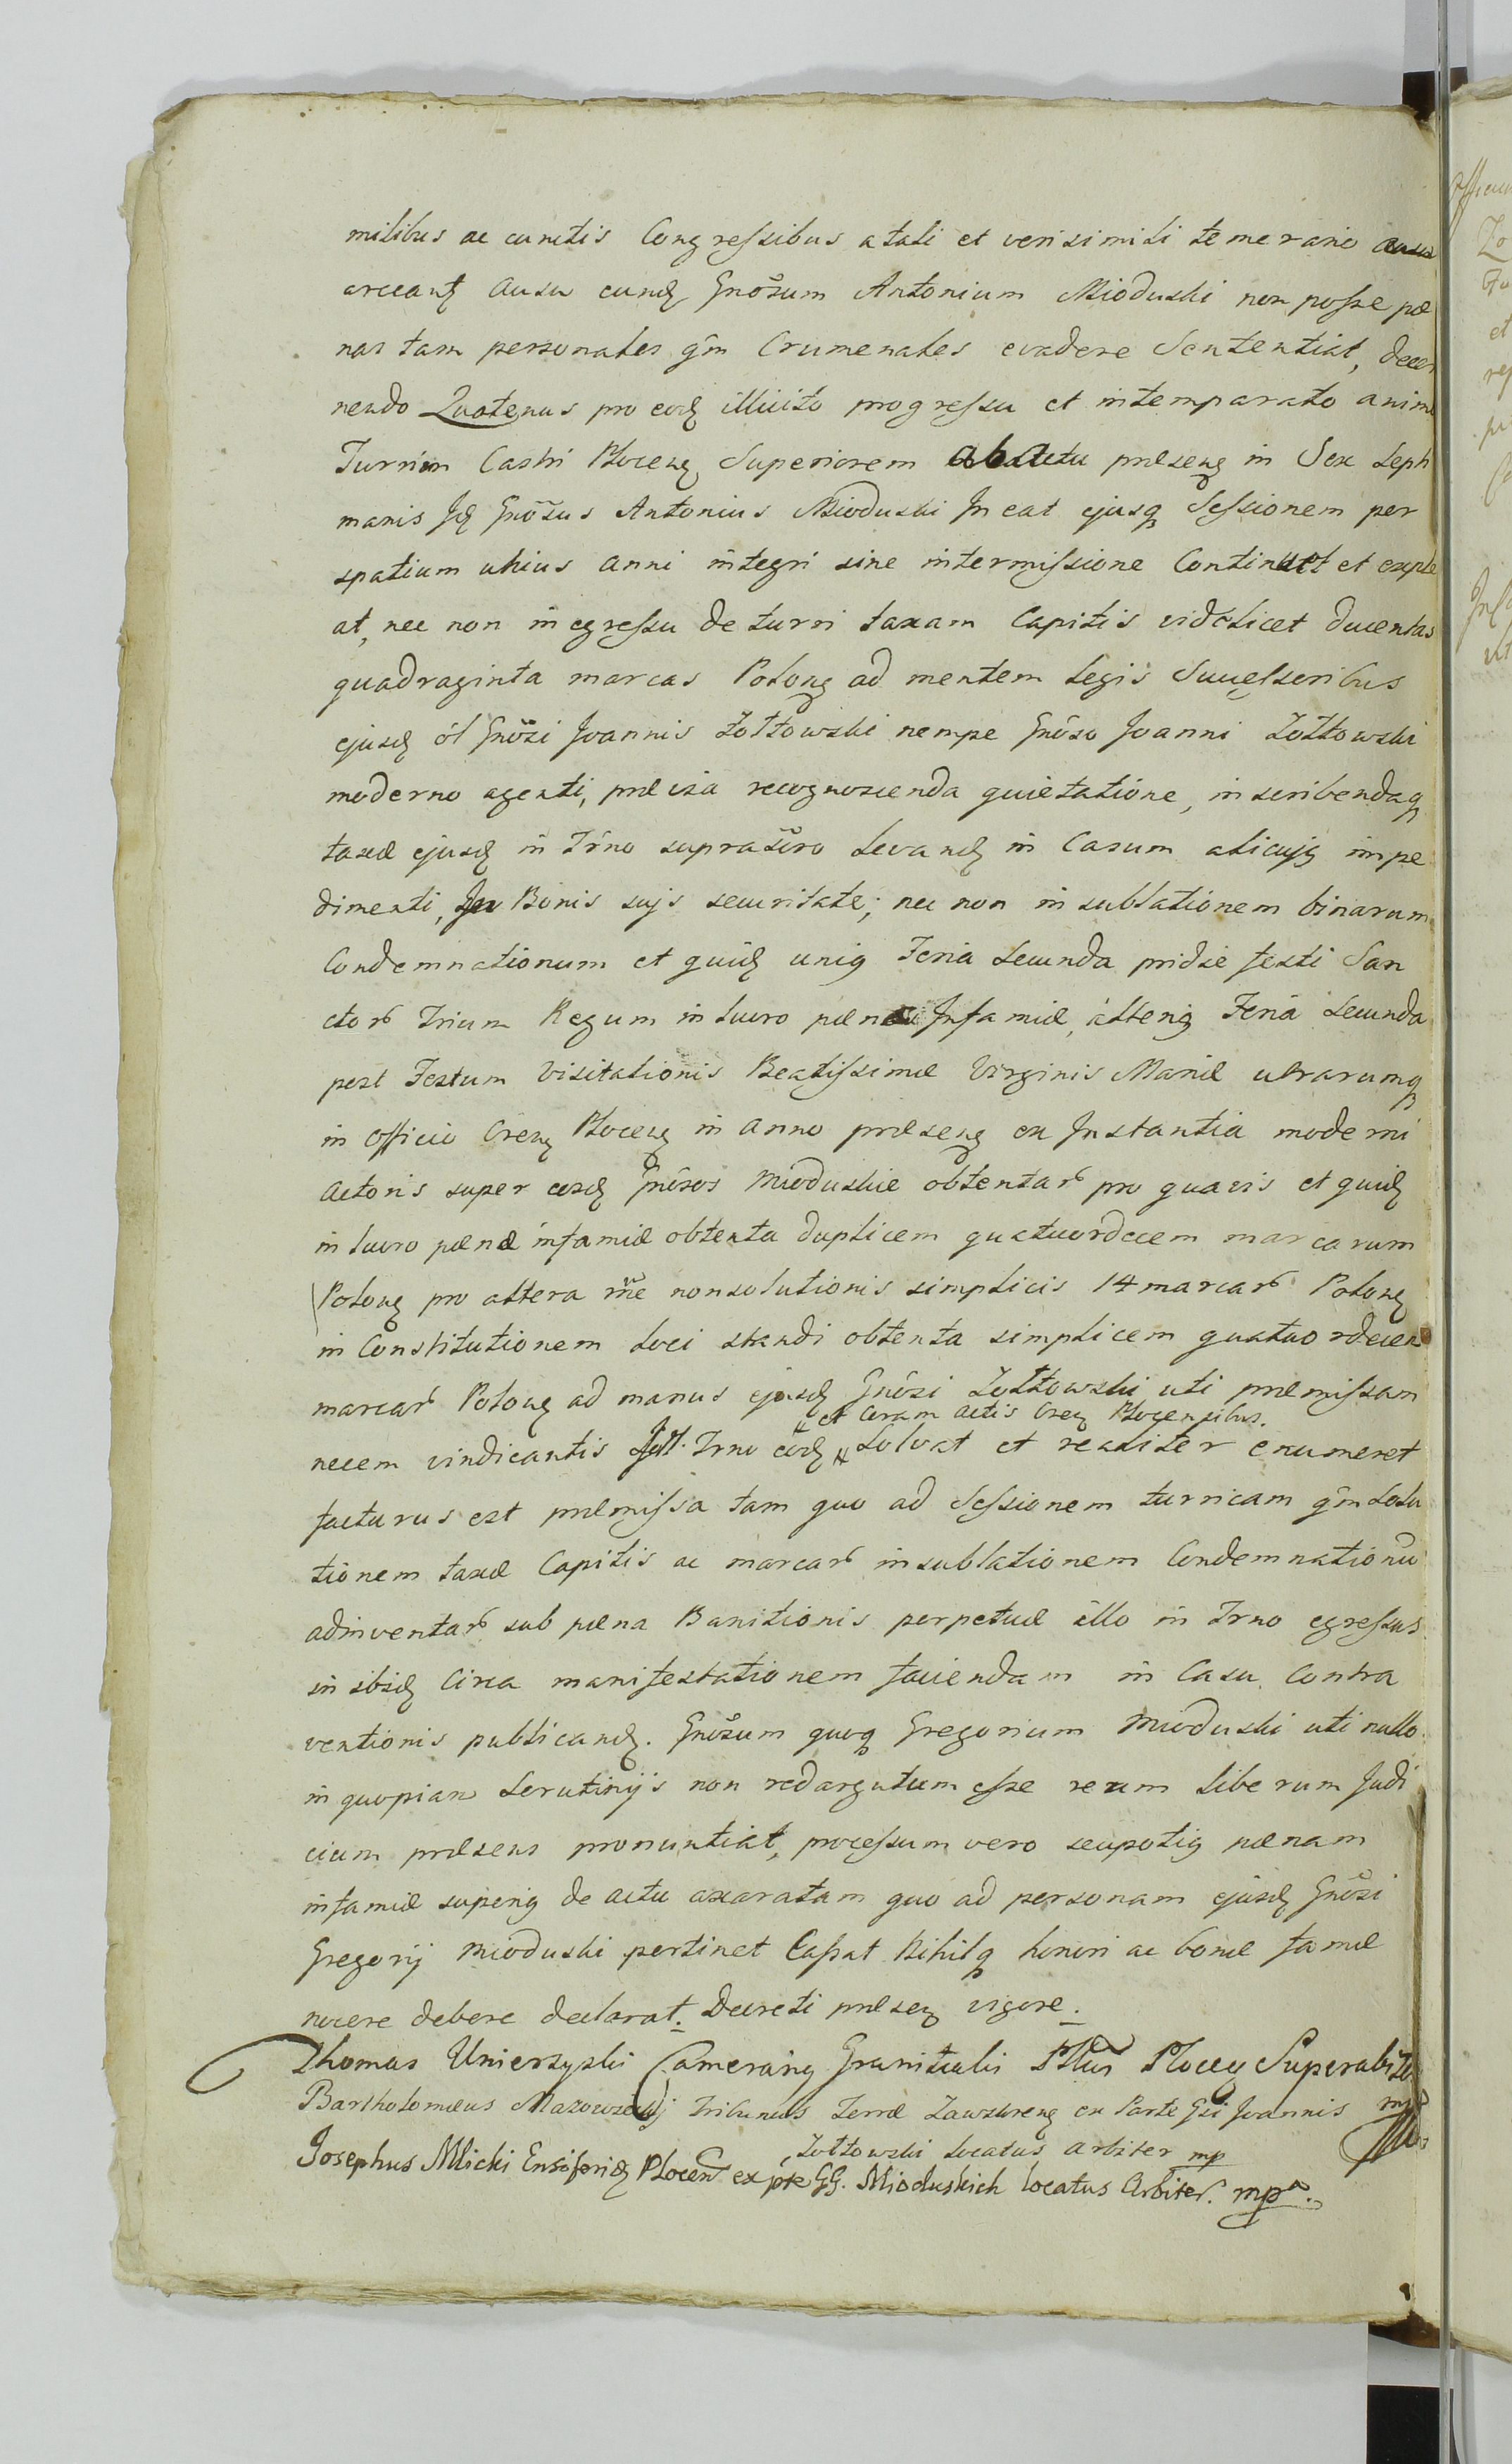 milibus ac cunctis Congressibus a tali et verisimili temerario
arceantʒ ausu eundʒ Gnõsum Antonium Mioduski non posse pæ
nas tam personales qm̃ Crumenales evadere Sententiat, decer
nendo Quatenus pro eodʒ illicito progressu et intemparato animo
Turrim Castri Plocenʒ Superiorem ab actu præsenʒ in Sex Septi
manis Idʒ Gnõsus Antonius Mioduski Ineat ejusqʒ Sessionem per
spatium unius anni integri sine intermissione Continuet et exple
at, nec non in egressu de turri taxam Capitis videlicet ducentas
quadraginta marcas Polonʒ ad mentem Legis Successoribus
ejusdʒ ol Gnõsi Joannis Zołtowski nempe Gnõso Joanni Zołtowski
moderno agenti, prævia recognoscenda quietatione, inscribendaqʒ
taxæ ejusdʒ in Trno suprascro levandʒ in Casum alicujʒ impe
dimenti, In Bonis sujs securitate; nec non in sublationem binarum
Condemnationum et quidʒ unig Feria Secunda pridie festi San
ctorʒ Trium Regum in lucro pænæ Infamiæ, alterig Feria Secunda
post Festum Visitationis Beatissimæ Virginis Mariæ utrarumqʒ
in Officio Crenʒ Plocenʒ in Anno præsenʒ ex Instantia moderni
Actoris super eosdʒ Gnõsos Mioduskie obtentarʒ pro quavis et quidʒ
in lucro pænæ infamiæ obtenta duplicem quatuordecem marcarum
Polonʒ pro altera rne nonsolutionis simplicis 14 marcarʒ Polonʒ
in Constitutionem Loci standi obtenta simplicem quatuordecem
marcarʒ Polonʒ ad manus ejusdʒ Gnõsi Zołtowski uti præmissam
et Coram Actis Crenʒ Plocensibus.
necem vindicantis Trno eodʒ Solvat et realiter enumeret
facturus est præmissa tam quo ad Sessionem turricam qm̃ Solu
tionem taxæ Capitis ac marcarʒ in sublationem Condemnationũ
adinventarʒ sub pæna Banitionis perpetuæ illo in Trno egressus
in ibidʒ Circa manifestationem faciendam in Casu Contra
ventionis publicandʒ. Gnõsum quoqʒ Gregorium Mioduski uti nullo
in quopiam Scrutinijs non redargutum esse rerum liberum Judi
cium præsens pronuntiat, processum vero seupotig pænam
infamiæ superig de actu exaratam quo ad personam ejusdʒ Gnõsi
Gregorij Mioduski pertinet Cassat Nihilqʒ honori ac bonæ famæ
nocere debere declarat. Decreti præsenʒ vigore.
Thomas Uniersyski Camerarig Granitialis Plocen Superarbiter
mp
Bartholomæus Mazowiecki Tribunus Terræ Zawskrenʒ ex Parte Gsi Joannis
Zołtowski locatus arbiter mp
Josephus Mlicki Ensiferidʒ Plocen̄ ex pte GG. Mioduskich locatus Arbiter. mpa.